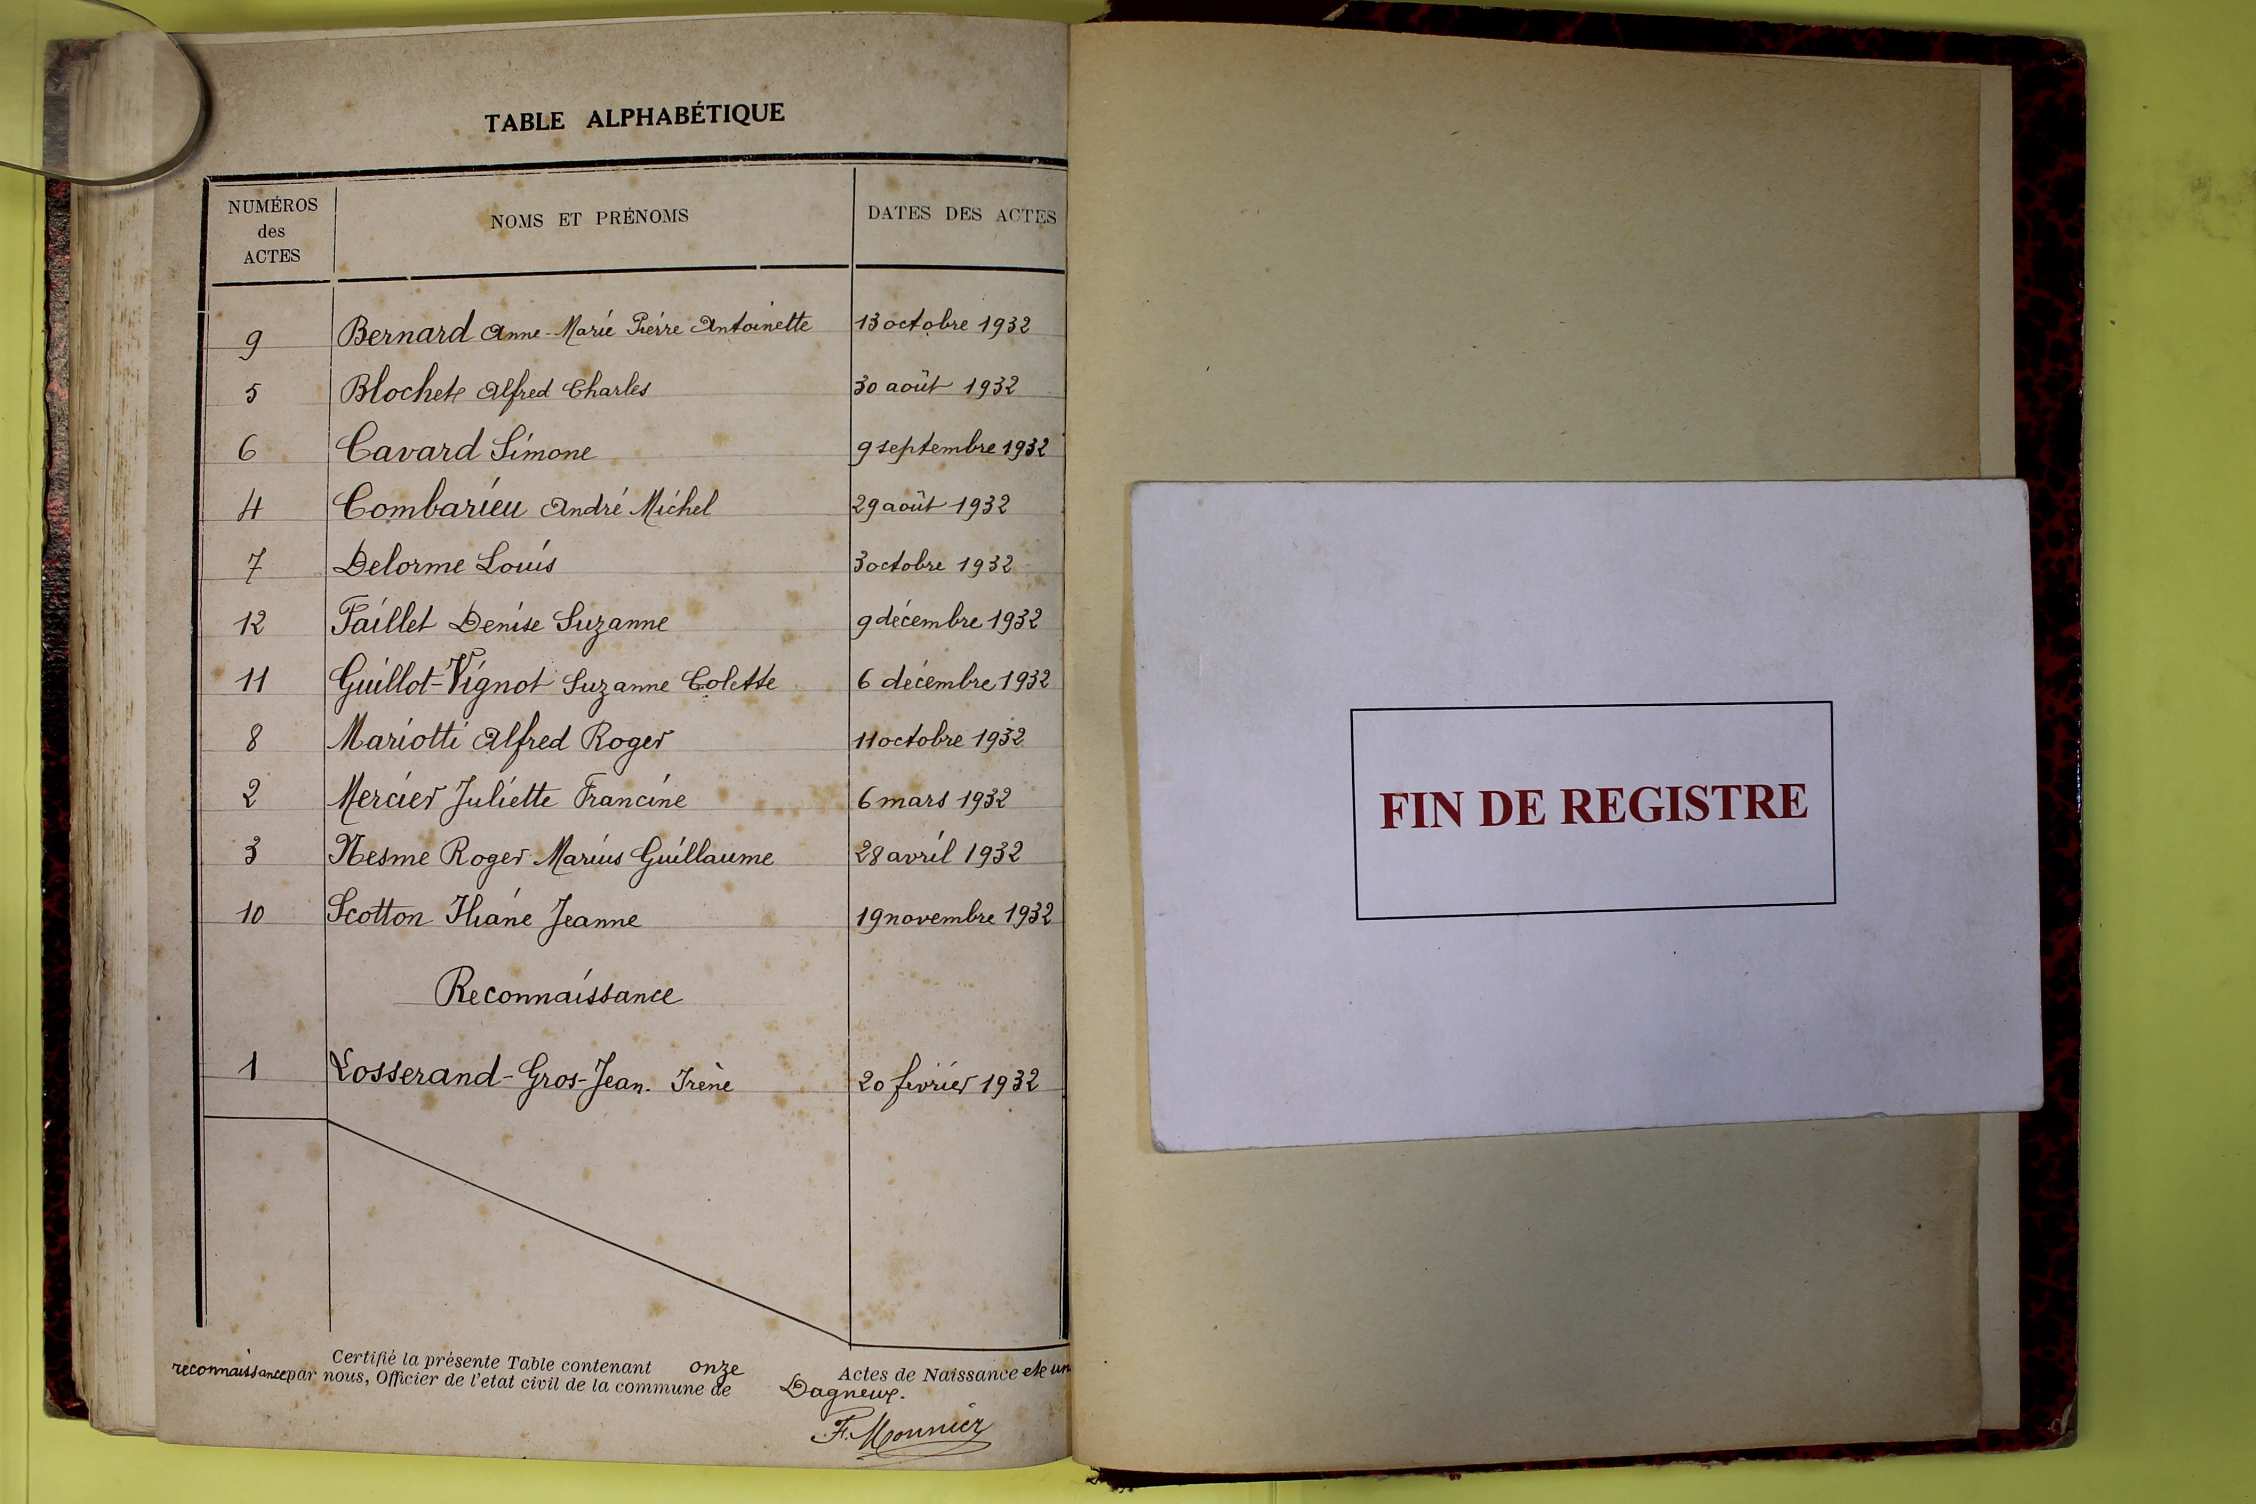 TABLE ALPHABÉTIQUE
NUMÉROS des ACTES NOMS ET PRÉNOMS DATES DES ACTES
9 Bernard Anne-Marie Pierre Antoinette 13 octobre 1932
5 Blochet Alfred Charles 30 août 1932
6 Cavard Simone 9 septembre 1932
4 Combarieu André Michel 29 août 1932
7 Delorme Louis 3 octobre 1932
12 Faillet Denise Suzanne 9 décembre 1932
11 Guillot-Vignot Suzanne Colette 6 décembre 1932
8 Mariotti Alfred Roger 11 octobre 1932
2 Mercier Juliette Francine 6 mars 1932
3 Nesme Roger Marius Guillaume 28 avril 1932
10 Scotton Jeanne 19 novembre 1932
Reconnaissance
1 Losserand-Gros-Jean. Irène 20 février 1932
Certifié la présente Table contenant onze Actes de Naissance et un
reconnaissance par nous, Officier de l'etat civil de la commune de Dagneux.
F. Mounier
FIN DE REGISTRE